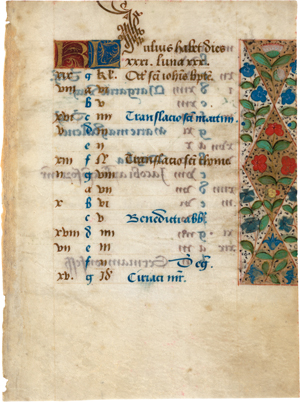 KL Iulius habet dies
xxxi. luna xxx.
xix g kl. Oct sci iohis bpte.
viii A vi
b v
xvi c iiii Translacio sci martini
v d iii
e ii
xiii f N Translacio sci thome
ii g viii
A vii
x b vi
c v Benedicti abb
xviii d iiii
vii e iii
f ii
xv g Id Ciriaci mr.